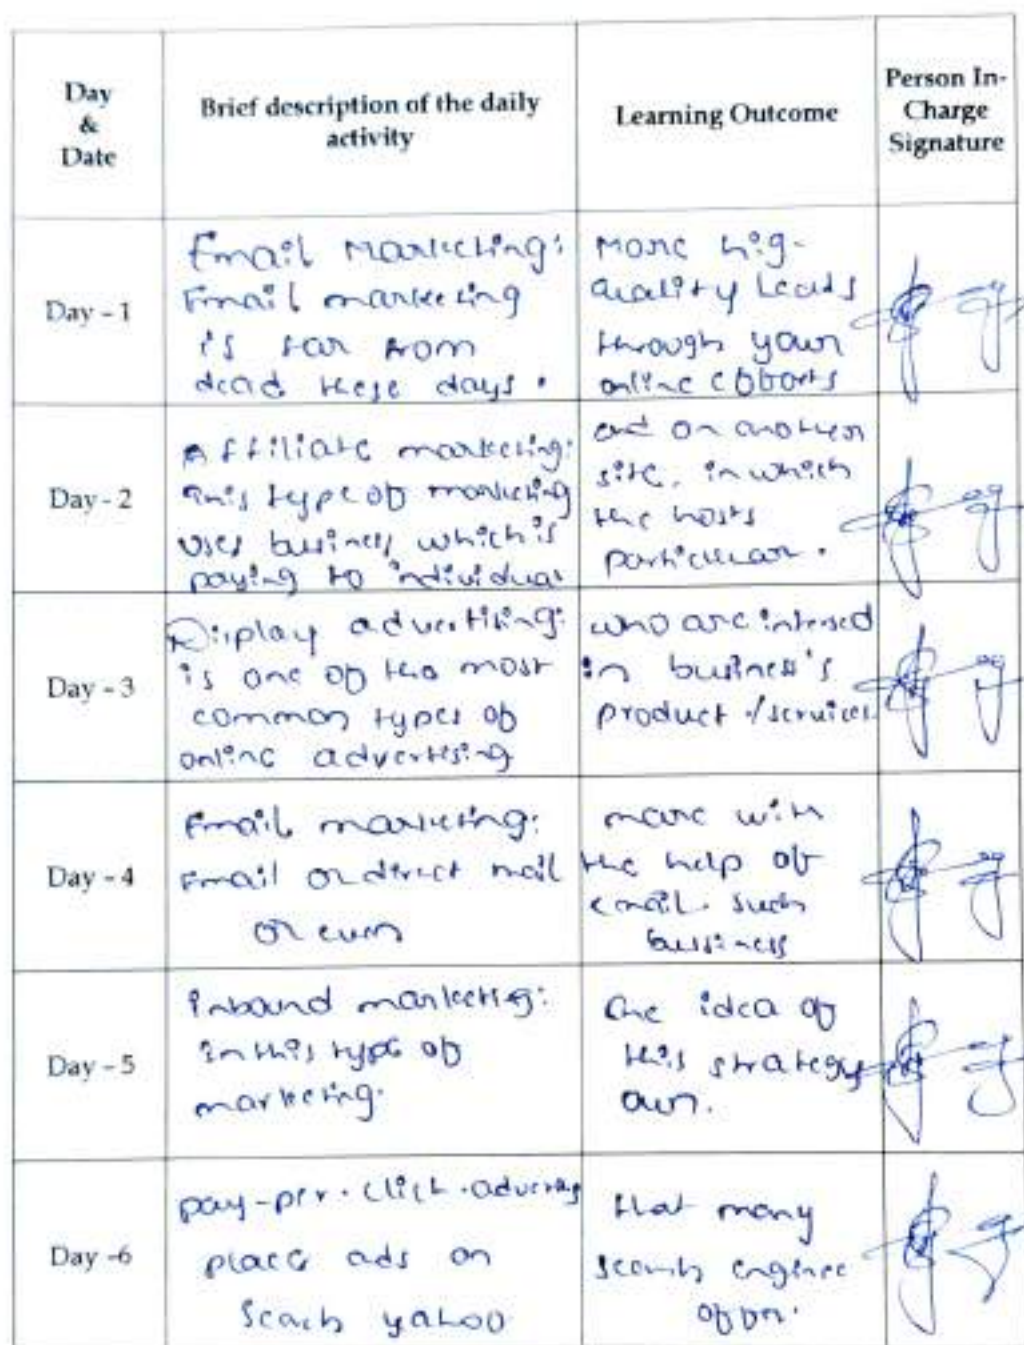 Day
&
Date
Brief description of the daily
activity
Learning Outcome
Person In-
Charge
Signature
Day - 1
Email Marketing:
Email marketing
is far from
dead these days.
More hig-
quality Leads
through your
online efforts
Day - 2
Affiliate marketing:
This type of marketing
uses business which is
paying to individual
and on another
site, in which
the hosts
particular.
Day - 3
Display advertising:
is one of the most
common types of
online advertising
who are intersed
in business's
product /services
Day - 4
Email marketing:
Email or direct mail
or even
more with
the help of
email. such
bussiness
Day - 5
Inbound marketing:
In this type of
marketing.
The idea of
this strategy
own.
Day -6
pay-per-click
place ads on
Search yahoo
that many
search engines